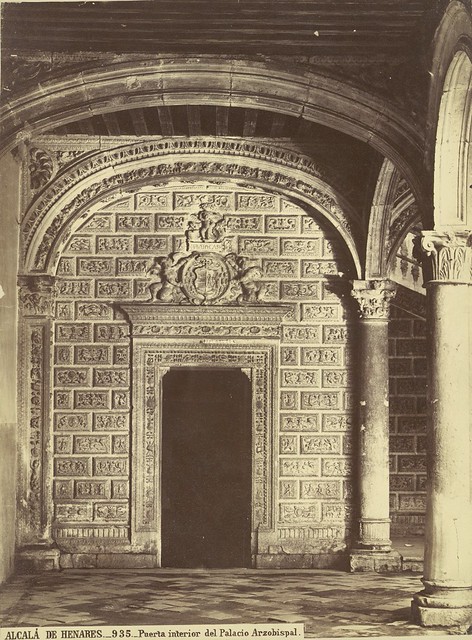 ALCALÁ DE HENARES._935._Puerta interior del Palacio Arzobispal.